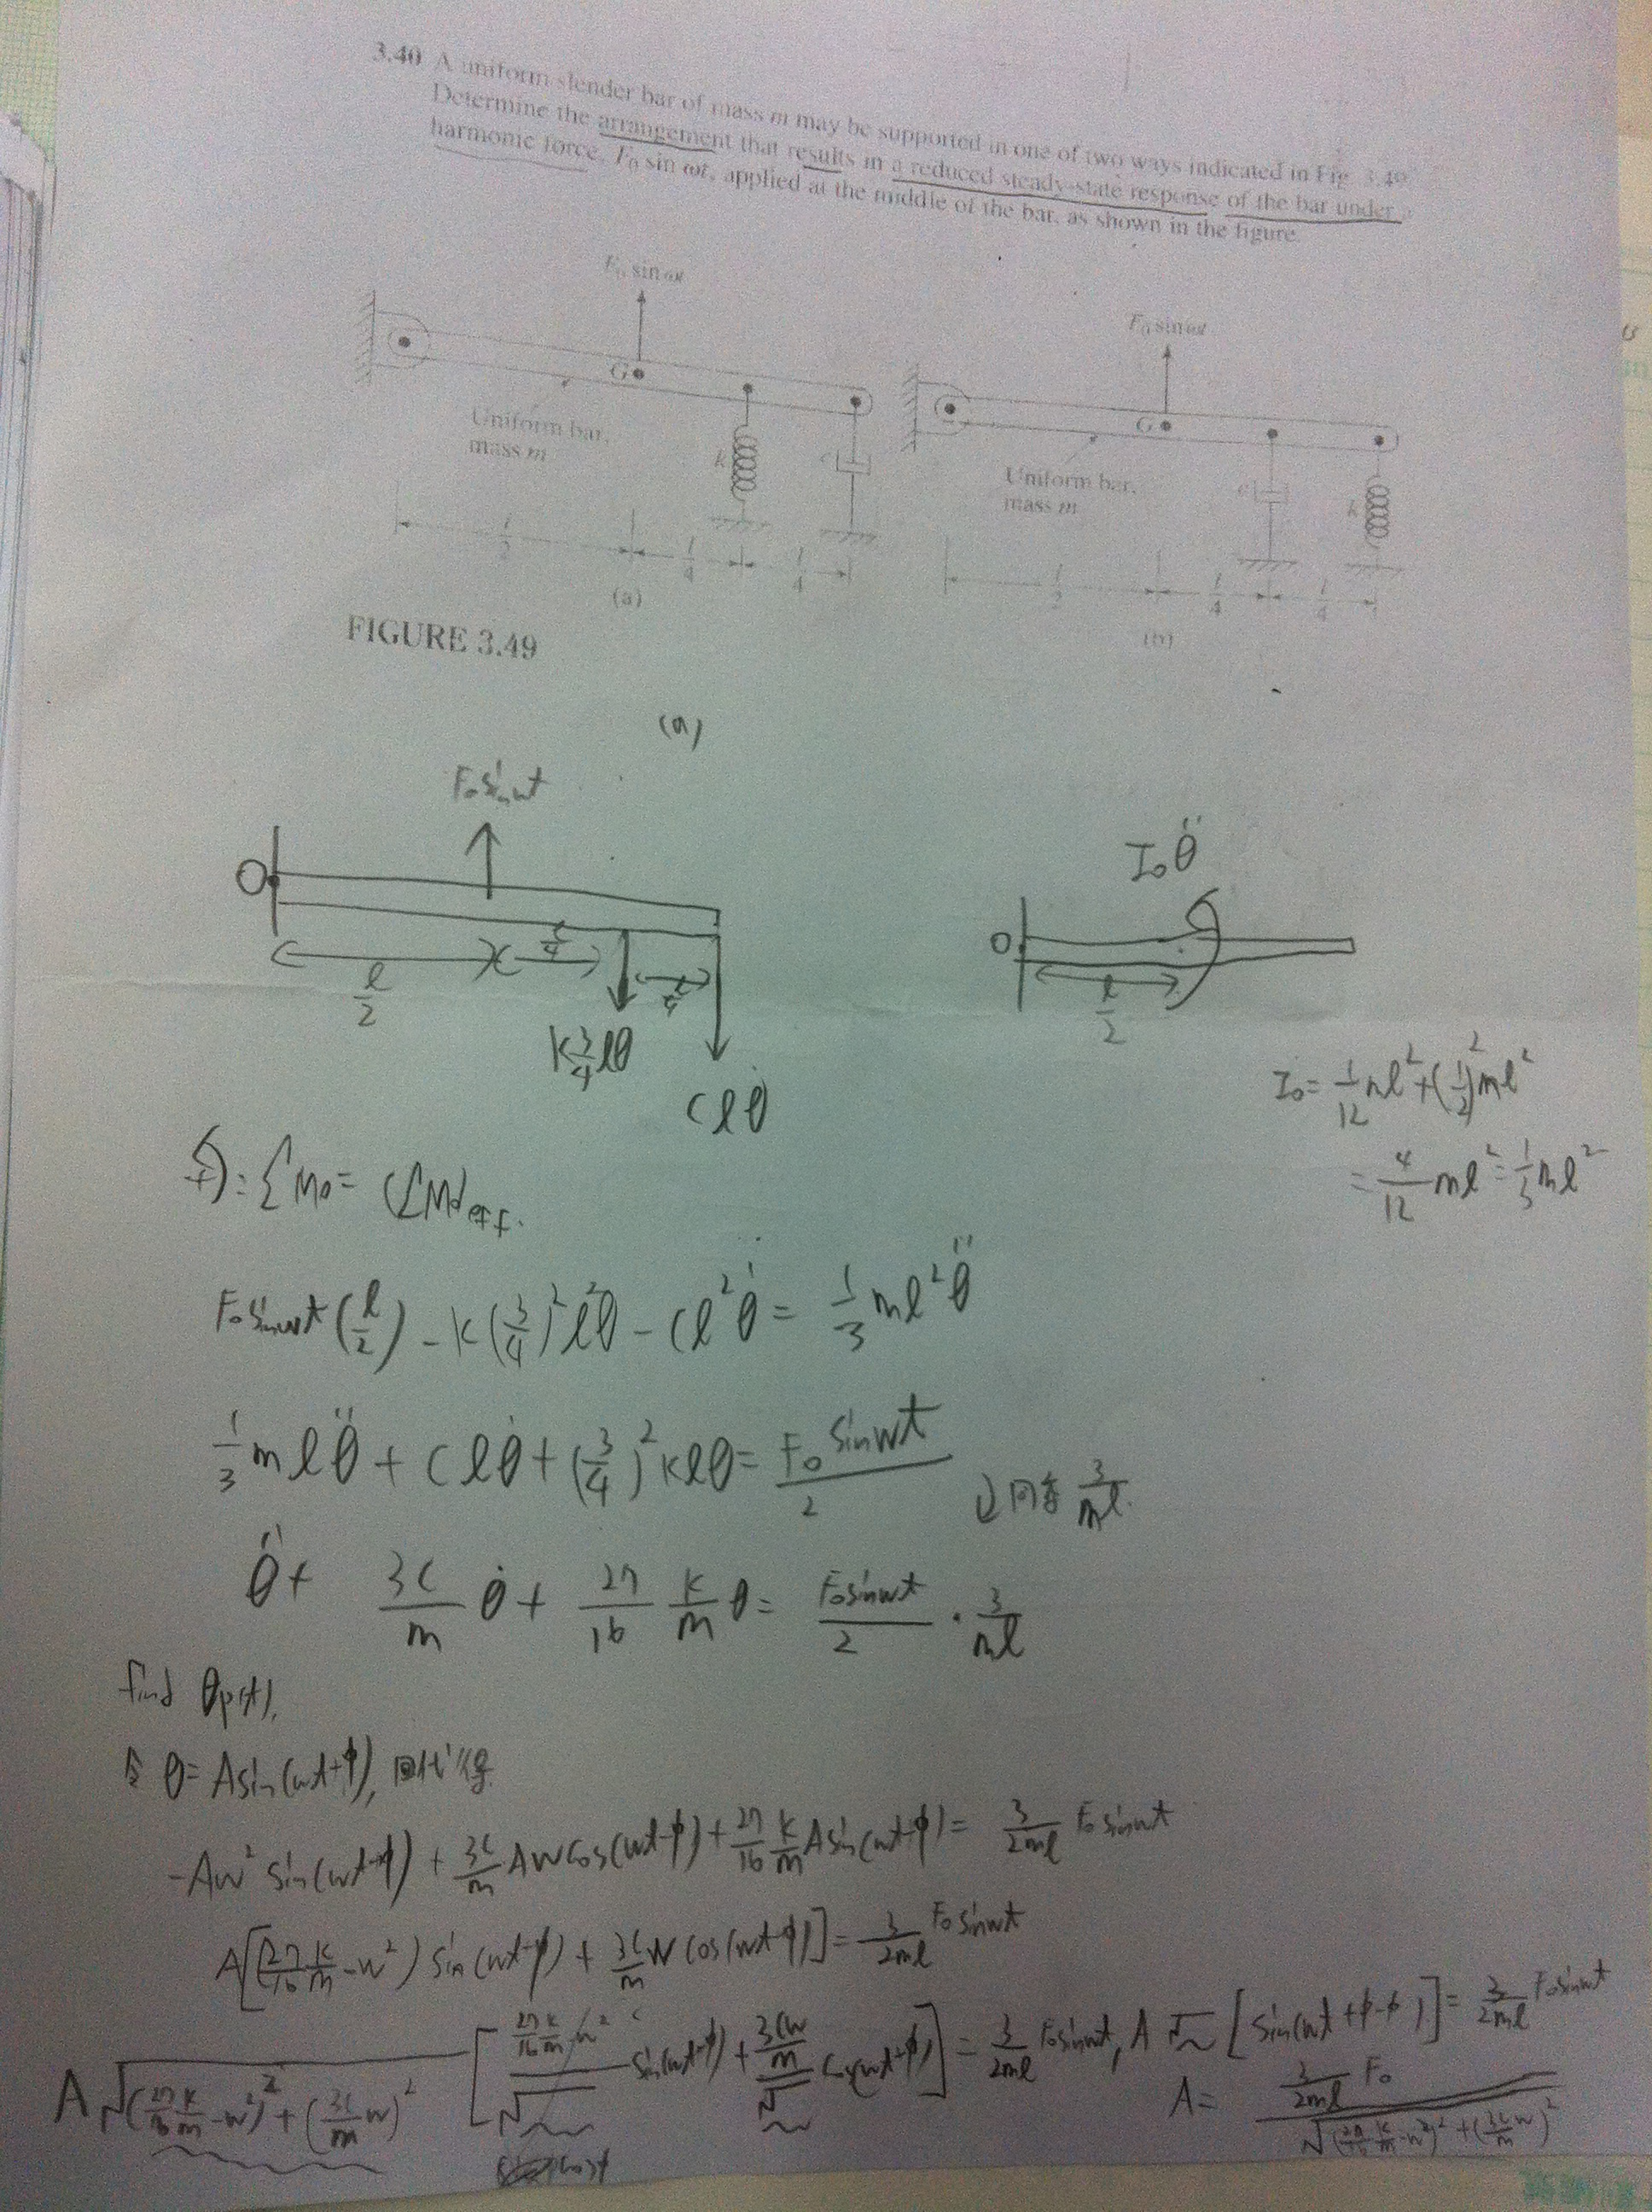 3.40 A uniform slender bar of mass m may be supported in one of two ways indicated in Fig. 3.49.
Determine the arrangement that results in a reduced steady-state response of the bar under a
harmonic force, F₀ sin ωt, applied at the middle of the bar, as shown in the figure.
F₀ sin ωt
F₀ sin ωt
G
G
Uniform bar,
mass m
k
c
Uniform bar,
mass m
c
k
l/2 l/4 l/4
l/2 l/4 l/4
(a)
(b)
FIGURE 3.49
(a)
F₀sinωt
I₀θ̈
O
O
l/2 l/4 l/4
l/2
k3/4lθ
clθ̇
I₀= 1/12 ml²+(1/2)²ml²
= 4/12 ml²=1/3ml²
+): ΣM₀= (ΣM₀)eff.
F₀sinωt(l/2) - k(3/4)²l²θ - cl²θ̇ = 1/3 ml²θ̈
1/3 mlθ̈ + clθ̇ + (3/4)²klθ = F₀ sinωt/2
同乘 3/ml
θ̈ + 3c/m θ̇ + 27/16 k/m θ = F₀sinωt/2 · 3/ml
find θp(t),
令 θ= Asin(ωt+φ), 回代得
-Aω² sin(ωt+φ) + 3c/m Aωcos(ωt+φ) + 27/16 k/m Asin(ωt+φ) = 3/2ml F₀ sinωt
A[(27/16 k/m - ω²) sin(ωt+φ) + 3c/m ω cos(ωt+φ)] = 3/2ml F₀ sinωt
A√(27/16 k/m - ω²)² + (3c/m ω)² [27/16 k/m - ω²/√~ sin(ωt+φ) + 3cω/m/√~ cos(ωt+φ)] = 3/2ml F₀sinωt, A √~ [sin(ωt+φ-φ)] = 3/2ml F₀sinωt
A= 3/2ml F₀/√(27/16 k/m - ω²)² + (3c/m ω)²